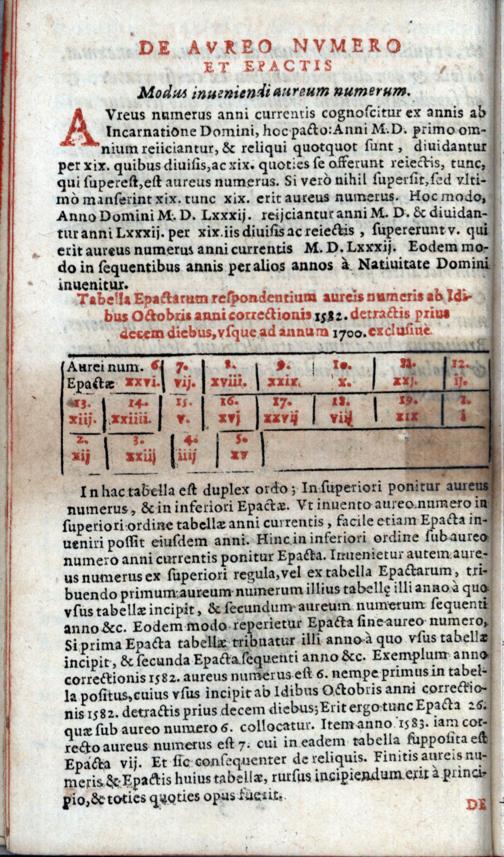 DE AVREO NVMERO
ET EPACTIS
Modus inueniendi aureum numerum.
AVreus numerus anni currentis cognoscitur ex annis ab
Incarnatiōne Domini, hoc pacto: Anni M.D. primo om-
nium reiiciantur, & reliqui quotquot sunt, diuidantur
per xix. quibus diuisis, ac xix. quoties se offerunt reiectis, tunc,
qui superest, est aureus numerus. Si verò nihil supersit, sed vlti-
mò manserint xix. tunc xix. erit aureus numerus. Hoc modo,
Anno Domini M. D. Lxxxij. reijciantur anni M. D. & diuidan-
tur anni Lxxxij. per xix. iis diuisis ac reiectis, supererunt v. qui
erit aureus numerus anni currentis M. D. Lxxxij. Eodem mo-
do in sequentibus annis per alios annos à Natiuitate Domini
inuenitur.
Tabella Epactarum respondentium aureis numeris ab Idi-
bus Octobris anni correctionis 1582. detractis prius
decem diebus, vsque ad annum 1700. exclusiue.
Aurei num. 6. 7. 8. 9. 10. 11. 12.
Epactæ xxvi. vij. xviii. xxix. x. xxj. ij.
13. 14. 15. 16. 17. 18. 19. 1.
xiij. xxiiii. v. xvj xxvij viij xix i
2. 3. 4. 5.
xij xxiij iiij xv
In hac tabella est duplex ordo; In superiori ponitur aureus
numerus, & in inferiori Epactæ. Vt inuento aureo numero in
superiori ordine tabellæ anni currentis, facile etiam Epacta in-
ueniri possit eiusdem anni. Hinc in inferiori ordine sub aureo
numero anni currentis ponitur Epacta. Inuenietur autem aure-
us numerus ex superiori regula, vel ex tabella Epactarum, tri-
buendo primum aureum numerum illius tabellę illi anno à quo
vsus tabellæ incipit, & secundum aureum numerum sequenti
anno &c. Eodem modo reperietur Epacta sine aureo numero,
Si prima Epacta tabellæ tribuatur illi anno à quo vsus tabellæ
incipit, & secunda Epacta sequenti anno &c. Exemplum anno
correctionis 1582. aureus numerus est 6. nempe primus in tabel-
la positus, cuius vsus incipit ab Idibus Octobris anni correctio-
nis 1582. detractis prius decem diebus; Erit ergo tunc Epacta 26.
quæ sub aureo numero 6. collocatur. Item anno 1583. iam cor-
recto aureus numerus est 7. cui in eadem tabella supposita est
Epacta vij. Et sic consequenter de reliquis. Finitis aureis nu-
meris & Epactis huius tabellæ, rursus incipiendum erit à princi-
pio, & toties quoties opus fuerit.
DE